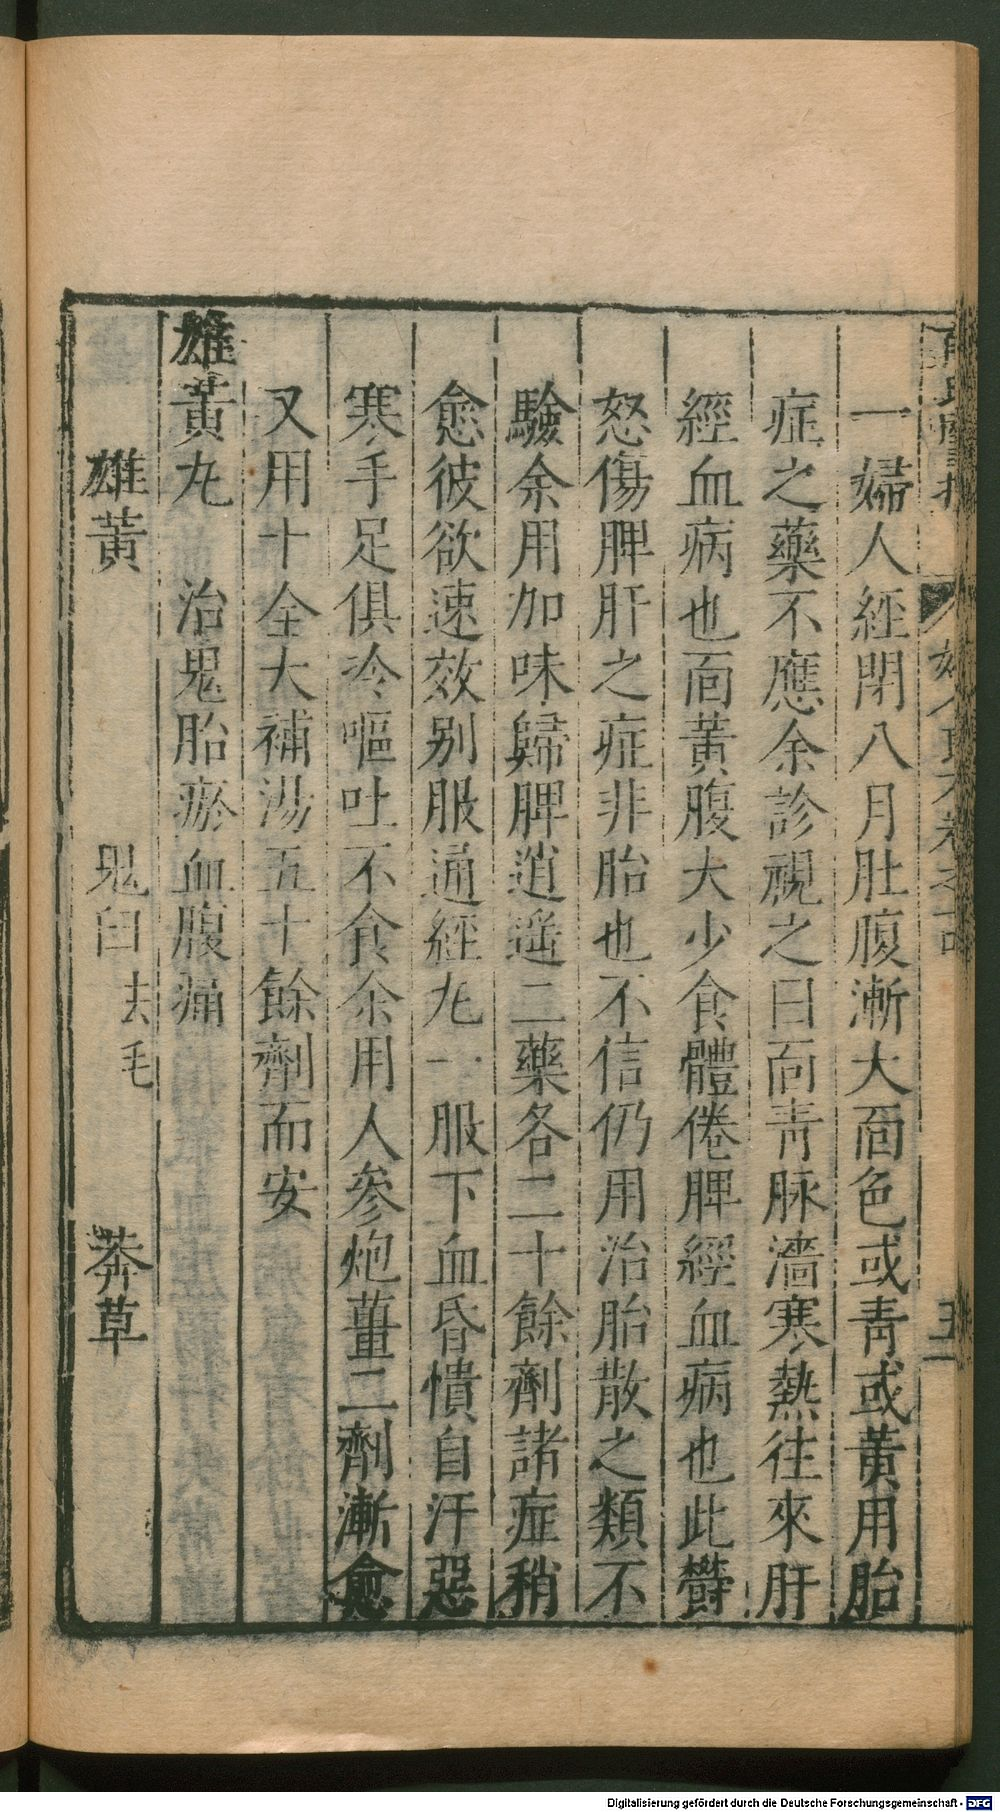 一婦人經閉八月肚腹漸大面色或青或黃用胎
症之藥不應余診視之曰面青脉濇寒熱往來肝
經血病也面黃腹大少食體倦脾經血病也此欝
怒傷脾肝之症非胎也不信仍用治胎散之類不
驗余用加味歸脾逍遥二藥各二十餘劑諸症稍
愈彼欲速效别服通經丸一服下血昏憒自汗惡
寒手足俱冷嘔吐不食余用人參炮薑二劑漸愈
又用十全大補湯五十餘劑而安
雄黃丸 治鬼胎瘀血腹痛
雄黃 鬼臼去毛 莽草
Digitalisierung gefördert durch die Deutsche Forschungsgemeinschaft - DFG